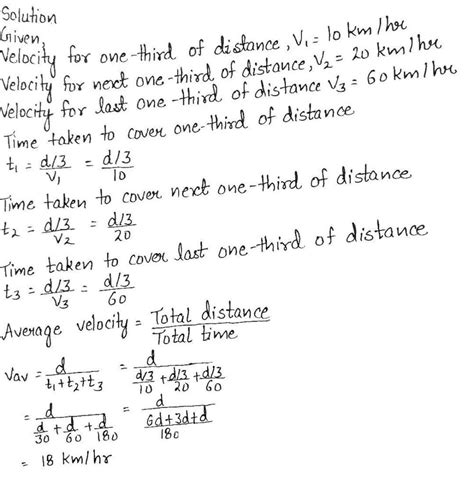 Solution
Given,
Velocity for one-third of distance, V₁ = 10 km/hr
Velocity for next one-third of distance, V₂ = 20 km/hr
Velocity for last one-third of distance V₃ = 60 km/hr
Time taken to cover one-third of distance
t₁ = (d/3)/V₁ = (d/3)/10
Time taken to cover next one-third of distance
t₂ = (d/3)/V₂ = (d/3)/20
Time taken to cover last one-third of distance
t₃ = (d/3)/V₃ = (d/3)/60
Average velocity = Total distance/Total time
Vav = d/(t₁+t₂+t₃) = d/((d/3)/10 + (d/3)/20 + (d/3)/60)
= d/(d/30 + d/60 + d/180) = d/((6d+3d+d)/180)
= 18 km/hr